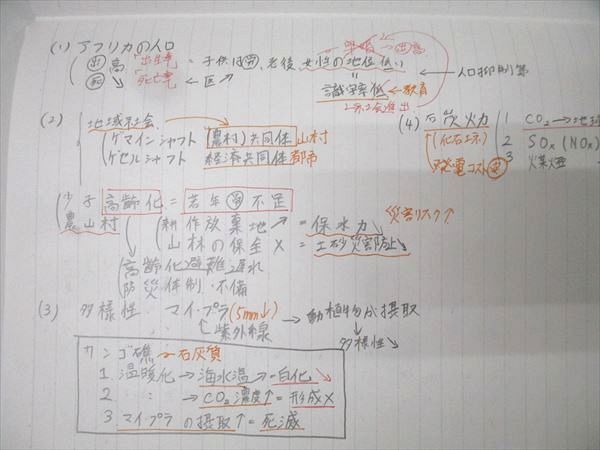 (1) アフリカの人口
早婚 → 出高
出 高 「出生率」 = 子供は労、老後、女性の地位低い ← 人口抑制策
死 ↘ 「死亡率」 ← 医↗ 識字率低 ← 教育
社会進出
(2) 地域社会
ゲマインシャフト (農村)共同体 山村
ゲゼルシャフト 経済共同体 都市
少子高齢化 = 若年労不足
農山村 耕作放棄地↗ = 保水力↘ 災害リスク↑
山林の保全 × = 土砂災害防止↘
高齢化避難遅れ
防災体制・不備
(3) 多様性 マイ・プラ (5mm↓) → 動植物が摂取
↑ 紫外線
多様性↘
サンゴ礁 ~ 石灰質
1 温暖化 → 海水温↗ → 白化
2 〃 → CO₂濃度↑ = 形成×
3 マイ・プラの摂取↑ = 死滅
(4) 石炭火力
(化石エネ)
発電コスト安
1 CO₂ → 地球
2 SOx (NOx)
3 煤煙